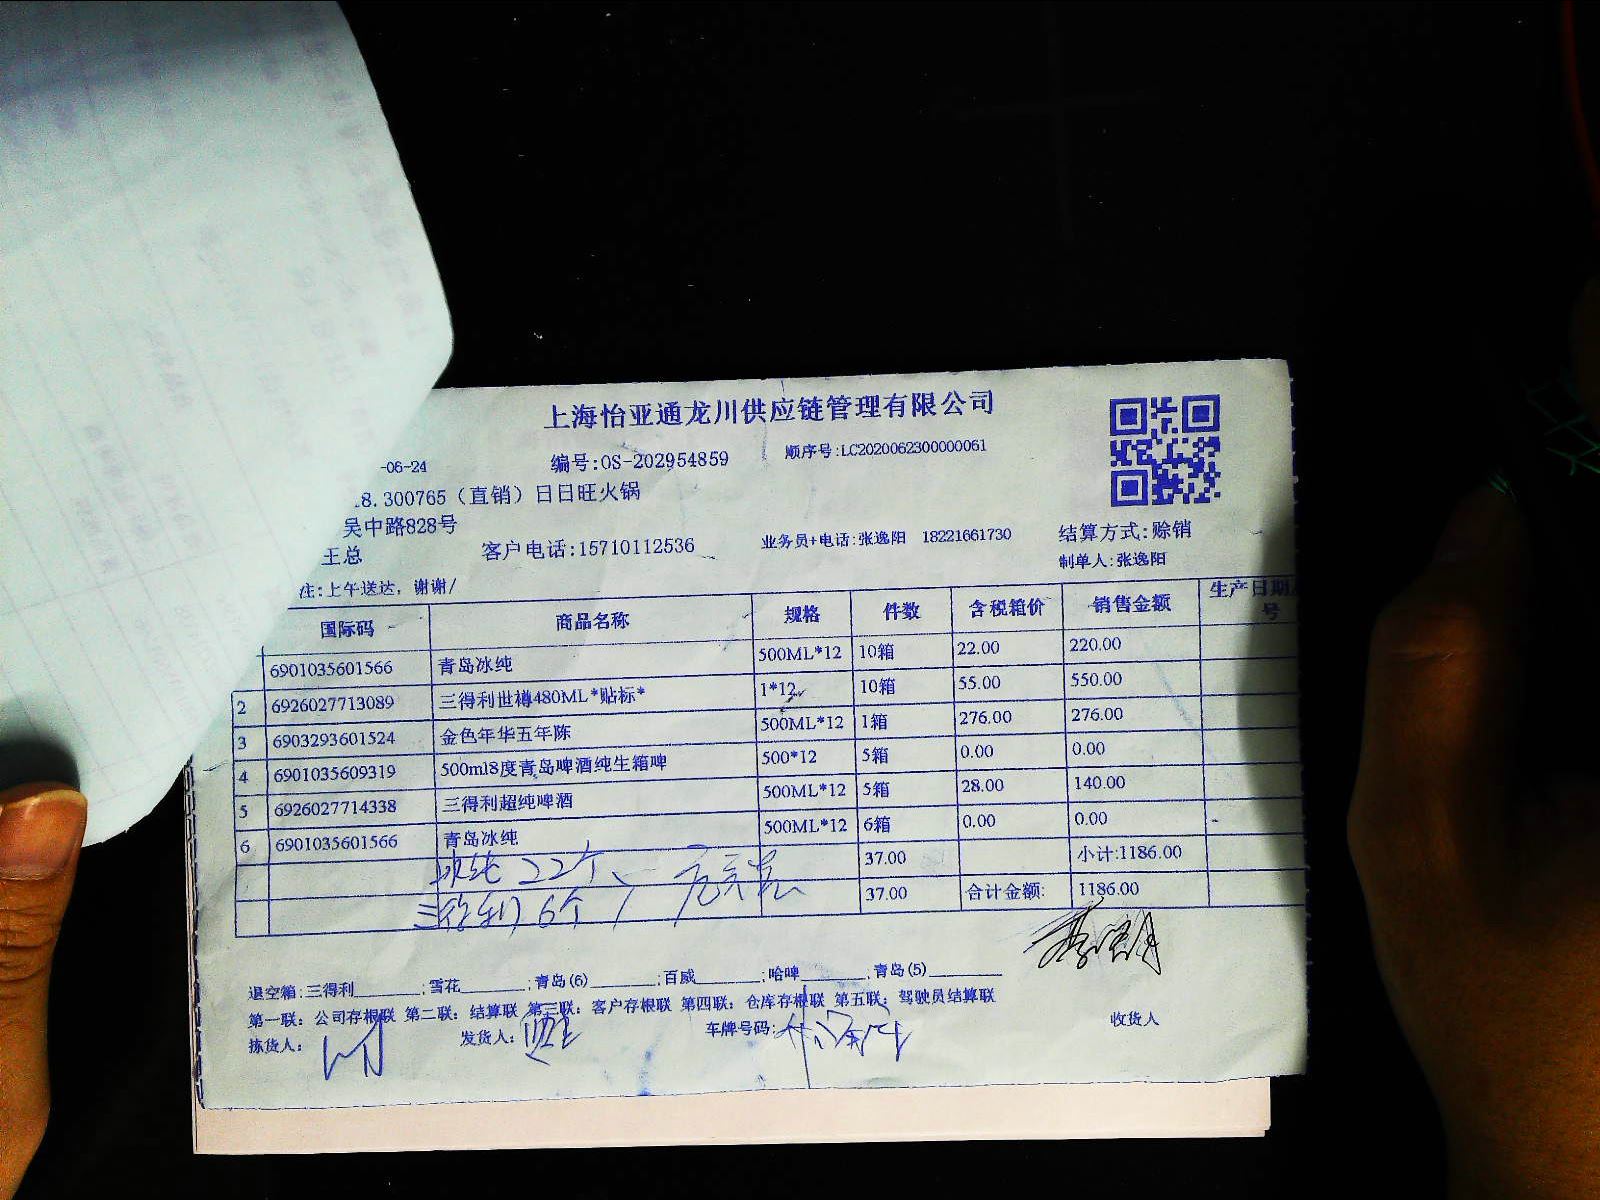 上海怡亚通龙川供应链管理有限公司
-06-24 编号:OS-202954859 顺序号:LC2020062300000061
8.300765（直销）日日旺火锅
吴中路828号
王总 客户电话:15710112536 业务员+电话:张逸阳 18221661730 结算方式:赊销
制单人:张逸阳
注:上午送达，谢谢/
国际码 商品名称 规格 件数 含税箱价 销售金额 生产日期
号
6901035601566 青岛冰纯 500ML*12 10箱 22.00 220.00
2 6926027713089 三得利世樽480ML*贴标* 1*12 10箱 55.00 550.00
3 6903293601524 金色年华五年陈 500ML*12 1箱 276.00 276.00
4 6901035609319 500ml8度青岛啤酒纯生箱啤 500*12 5箱 0.00 0.00
5 6926027714338 三得利超纯啤酒 500ML*12 5箱 28.00 140.00
6 6901035601566 青岛冰纯 500ML*12 6箱 0.00 0.00
冰纯 22个 37.00 小计:1186.00
三得利 6个 37.00 合计金额: 1186.00
退空箱:三得利______;雪花______;青岛(6)______;百威______;哈啤______;青岛(5)______
第一联：公司存根联 第二联：结算联 第三联：客户存根联 第四联：仓库存根联 第五联：驾驶员结算联
拣货人: 发货人: 车牌号码: 收货人